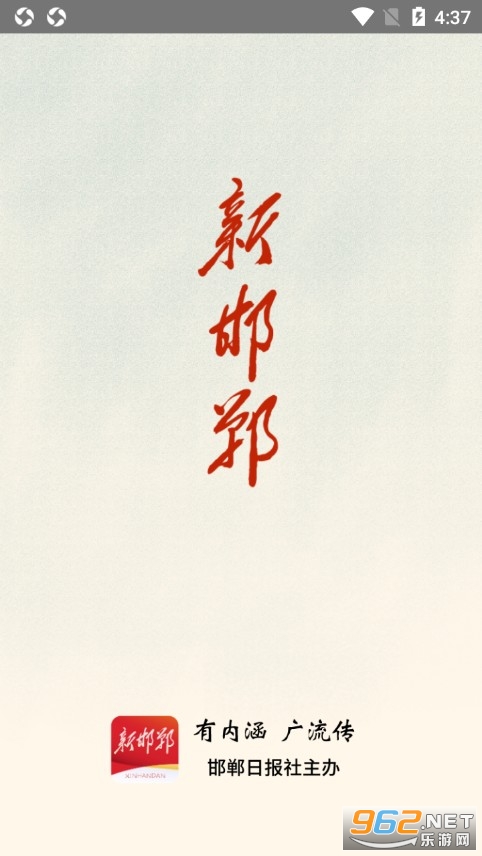 4:37
新
邯
郸
新邯郸
XINHANDAN
有内涵 广流传
邯郸日报社主办
962.NET
乐游网